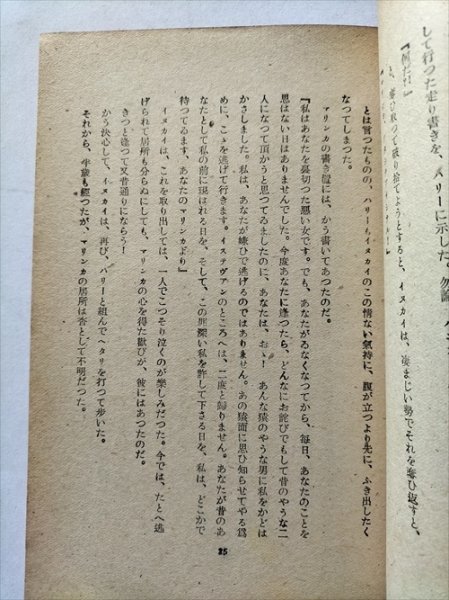 して行つた走り書きを、ハリーに示した。勿論、ハリ
『何だ!』
と、奪ひ取つて破り捨てようとすると、イヌカイは、凄まじい勢でそれを奪ひ返すと、
とは言つたものの、ハリーもイヌカイのこの情ない氣持に、腹が立つより先に、ふき出したく
なつてしまつた。
マリンカの書き置には、かう書いてあつたのだ。
『私はあなたを裏切つた悪い女です。でも、あなたがゐなくなつてから、毎日、あなたのことを
思はない日はありませんでした。今度あなたに逢つたら、どんなにお詫びでもして昔のやうな二
人になつて頂かうと思つてゐましたのに、あなたは、おゝ! あんな猿のやうな男に私をかどは
かさしました。私は、あなたが嫌ひで逃げるのではありません。あの猿面に思ひ知らせてやる爲
めに、こゝを逃げて行きます。イステヴアンのところへは、二度と歸りません。あなたが昔のあ
なたとして私の前に現はれる日を、そして、この罪深い私を許して下さる日を、私は、どこかで
待つてゐます、あなたのマリンカより』
イヌカイは、これを取り出しては、一人でこつそり泣くのが樂しみだつた。今では、たとへ逃
げられて居所も分らぬにしても、マリンカの心を得た歡びが、彼にはあつたのだ。
きつと逢つて又昔通りにならう!
かう決心して、イヌカイは、再び、ハリーと組んでヘタリを打つて歩いた。
それから、半歳も經つたが、マリンカの居所は杳として不明だつた。
25